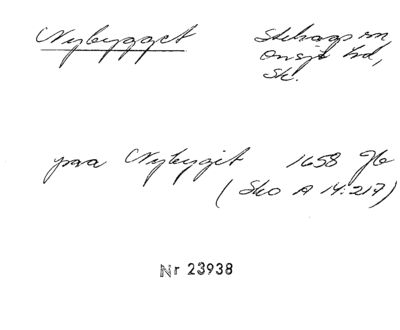 Nybygget Stehags sn,
Onsjö hd,
Sk.
paa Nybygit 1658 Jb
(Sko A 14:217)
Nr 23938